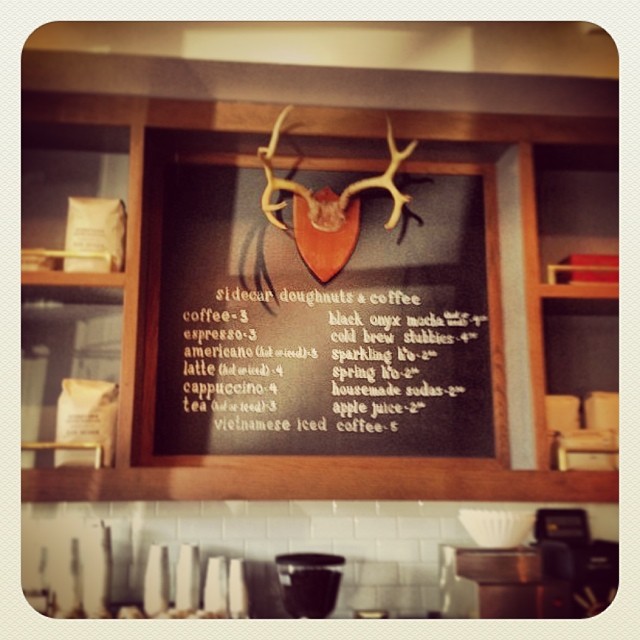 sidecar doughnuts & coffee
coffee-3
espresso-3
americano (hot or iced)-3
latte (hot or iced)-4
cappuccino-4
tea (hot or iced)-3
black onyx mocha
cold brew stubbies-4
sparkling h2o-2
spring h2o-2
housemade sodas-2
apple juice-2
vietnamese iced coffee-5